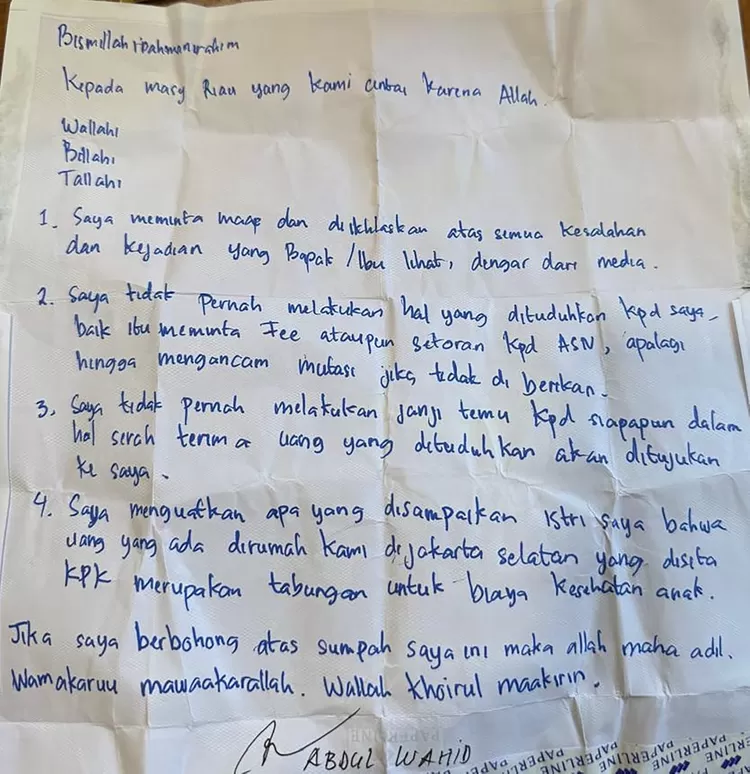 Bismillahirrahmanirrahim
Kepada masy Riau yang kami cintai karena Allah.
Wallahi
Billahi
Tallahi
1. Saya meminta maap dan diikhlaskan atas semua kesalahan
dan kejadian yang Bapak/Ibu lihat, dengar dari media.
2. Saya tidak pernah melakukan hal yang dituduhkan kpd saya,
baik itu meminta Fee ataupun setoran kpd ASN, apalagi
hingga mengancam mutasi jika tidak di berikan.
3. Saya tidak pernah melakukan janji temu kpd siapapun dalam
hal serah terima uang yang dituduhkan akan ditujukan
ke saya.
4. Saya menguatkan apa yang disampaikan istri saya bahwa
uang yang ada dirumah kami dijakarta selatan yang disita
KPK merupakan tabungan untuk biaya kesehatan anak.
Jika saya berbohong atas sumpah saya ini maka allah maha adil.
Wamakaruu mawaakarallah. Wallah khoirul maakirin.
ABDUL WAHID
PAPERLINE PAPERLINE PAPERLINE PAPERLINE